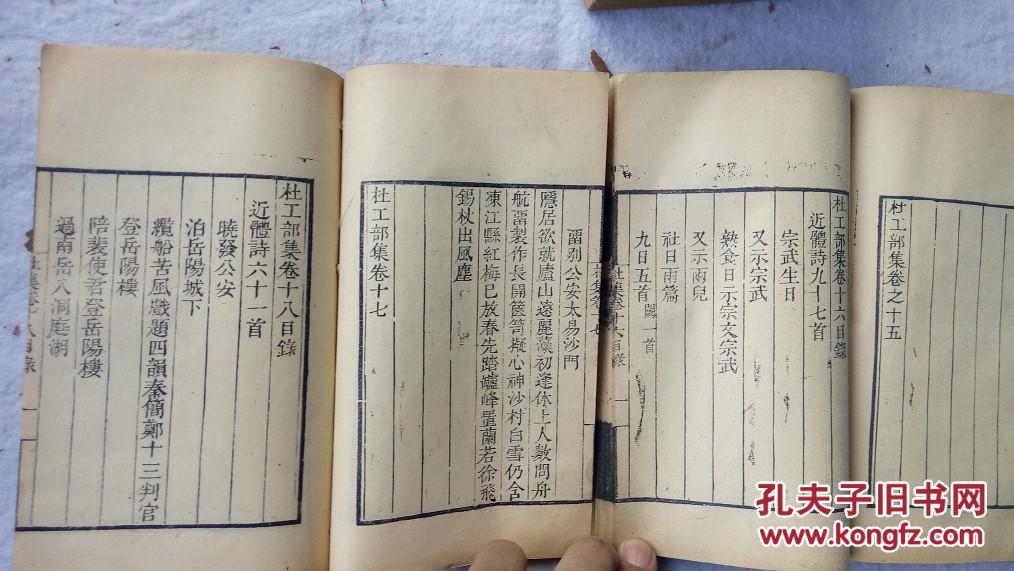 杜工部集卷之十五
杜工部集卷十六目錄
近體詩九十七首
宗武生日
又示宗武
熟食日示宗文宗武
又示兩兒
社日兩篇
九日五首闕一首
杜集卷十六目錄
一
留别公安太易沙門
隱居欲就廬山遠麗藻初逢休上人數問舟
航留製作長開篋笥擬心神沙村白雪仍含
凍江縣紅梅已放春先踏罏峰置蘭若徐飛
錫杖出風塵
杜工部集卷十七
杜工部集卷十八目錄
近體詩六十一首
曉發公安
泊岳陽城下
纜船苦風戲題四韻奉簡鄭十三判官
登岳陽樓
陪裴使君登岳陽樓
過南岳入洞庭湖
一
孔夫子旧书网
www.kongfz.com